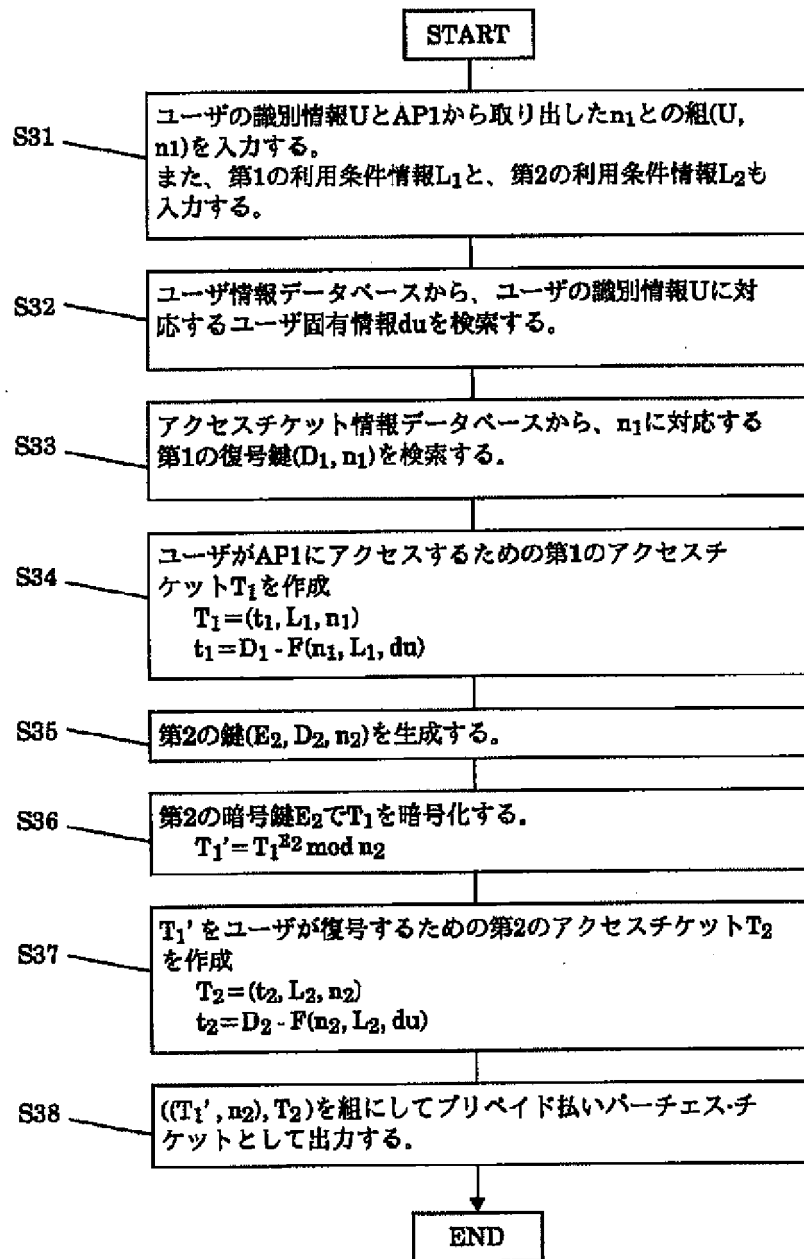 START
S31
ユーザの識別情報UとAP1から取り出したn₁との組(U,
n1)を入力する。
また、第1の利用条件情報L₁と、第2の利用条件情報L₂も
入力する。
S32
ユーザ情報データベースから、ユーザの識別情報Uに対
応するユーザ固有情報duを検索する。
S33
アクセスチケット情報データベースから、n₁に対応する
第1の復号鍵(D₁, n₁)を検索する。
S34
ユーザがAP1にアクセスするための第1のアクセスチ
ケットT₁を作成
T₁=(t₁, L₁, n₁)
t₁=D₁ - F(n₁, L₁, du)
S35
第2の鍵(E₂, D₂, n₂)を生成する。
S36
第2の暗号鍵E₂でT₁を暗号化する。
T₁'=T₁^E₂ mod n₂
S37
T₁' をユーザが復号するための第2のアクセスチケットT₂
を作成
T₂=(t₂, L₂, n₂)
t₂=D₂ - F(n₂, L₂, du)
S38
((T₁', n₂), T₂)を組にしてプリペイド払いパーチェス・チ
ケットとして出力する。
END